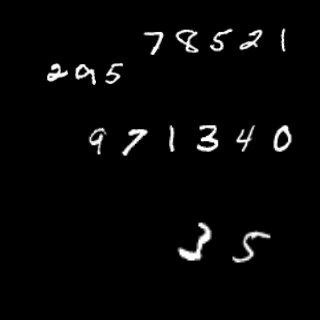 78521
295
971340
35